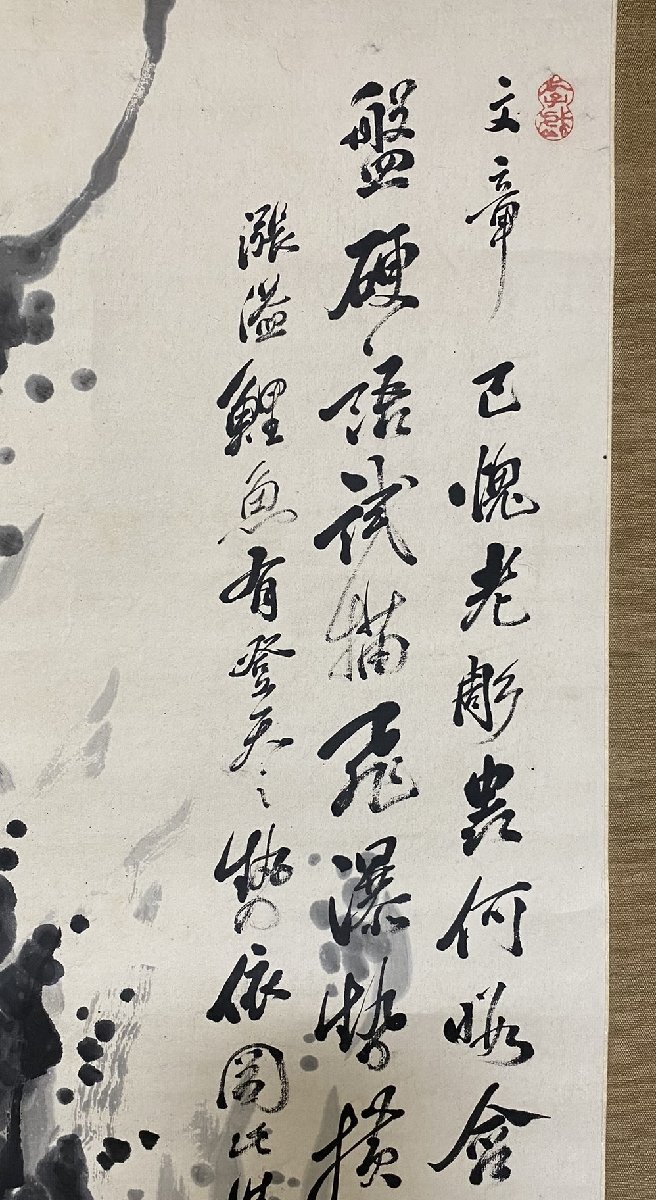 文章已愧老彫蟲何暇含
盤硬語試描飛瀑勢横
漲溢鯉魚有登天之勢依図此